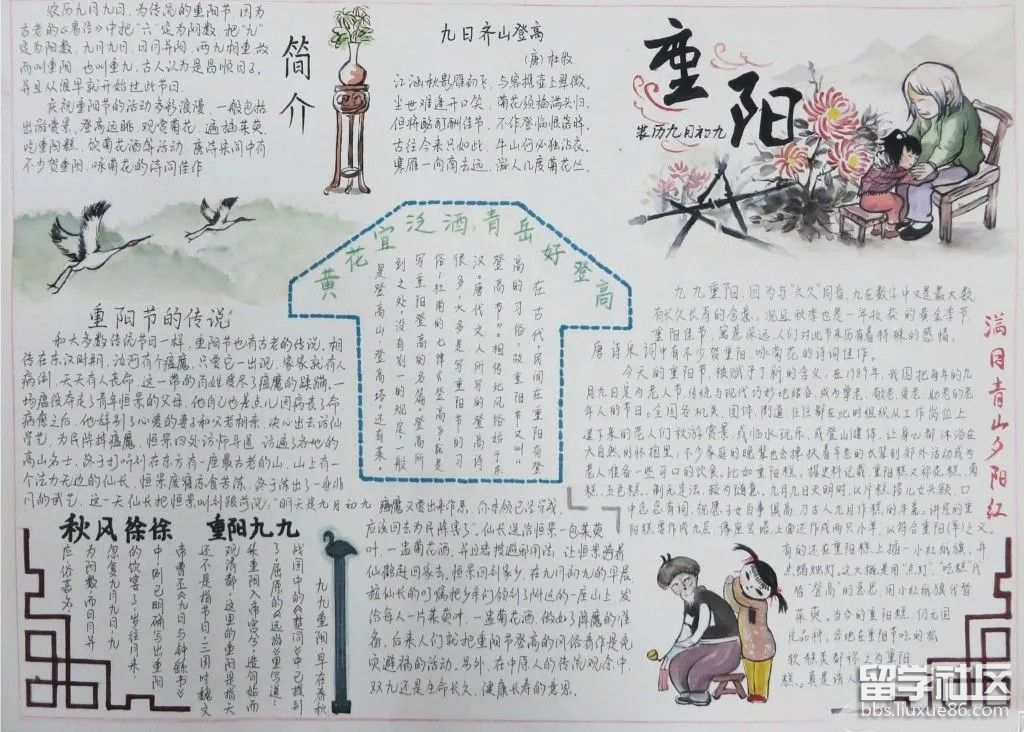 简介
农历九月九日，为传统的重阳节，因为
古老的《易经》中把“六”定为阴数，把“九”
定为阳数，九月九日，日月并阳，两九相重，故
而叫重阳，也叫重九，古人认为是
并且从很早就开始过此节日。
庆祝重阳节的活动多彩浪漫，一般包括
出游赏景、登高远眺、观赏菊花、遍插茱萸、
吃重阳糕、饮菊花酒等活动。唐诗宋词中有
不少贺重阳，咏菊花的诗词佳作
九日齐山登高
(唐)杜牧
江涵秋影雁初飞，与客携壶上翠微。
尘世难逢开口笑，菊花须插满头归。
但将酩酊酬佳节，不作登临恨落晖。
古往今来只如此，牛山何必独沾衣。
寒雁一向南去远，游人几度菊花丛。
重阳
农历九月初九
黄花宜泛酒，青岳好登高
在古代，民间在重阳有登
高的习俗，故重阳节又叫“
登高节”。相传此风俗始于东
汉。唐代文人所写的登高诗
很多，大多是写重阳节的习
俗；杜甫的七律《登高》，就是
写重阳登高的名篇。登高所
到之处，没有划一的规定，一般
是登高山、登高塔。还有
重阳节的传说
和大多数传统节日一样，重阳节也有古老的传说。相
传在东汉时期，汝河有个瘟魔，只要它一出现，家家就有人
病倒，天天有人丧命，这一带的百姓受尽了瘟魔的蹂躏。一
场瘟疫夺走了青年恒景的父母，他自己也差点儿因病丧了命。
病愈之后，他辞别了心爱的妻子和父老乡亲，决心出去访仙
学艺，为民除掉瘟魔。恒景四处访师寻道，访遍了各地的
高山名士，终于打听到在东方有一座最古老的山，山上有一
个法力无边的仙长，恒景
凡的武艺。这一天仙长把恒景叫到跟前说：“明天是九月初九，瘟魔又要出来作恶，你本领已经学成，
应该回去为民除害了”。仙长送给恒景一包茱萸
叶，一盅菊花酒，并且密授避邪用法，让恒景骑着
仙鹤赶回家去。恒景回到家乡，在九月初九的早晨，
按仙长的叮嘱把乡亲们领到了附近的一座山上，发
给每人一片茱萸叶，一盅菊花酒，做好了降魔的准
备。后来人们就把重阳节登高的风俗看作是免
灾避祸的活动。另外，在中原人的传统观念中，
双九还是生命长久、健康长寿的意思。
满目青山夕阳红
九九重阳，因为与“久久”同音，九在数字中又是最大数，
有长久长寿的含意，况且秋季也是一年收获的黄金季节，
重阳佳节，寓意深远，人们对此节历来有着特殊的感情，
唐诗宋词中有不少贺重阳，咏菊花的诗词佳作。
今天的重阳节，被赋予了新的含义，在1989年，我国把每年的九
月九日定为老人节，传统与现代巧妙地结合，成为尊老、敬老、爱老、助老的老
年人的节日。全国各机关、团体、街道，往往都在此时组织从工作岗位上
退下来的老人们秋游赏景，或临水玩乐，或登山健体，让身心都沐浴在
大自然的怀抱里；不少家庭的晚辈也会搀扶着年老的长辈到郊外活动或为
老人准备一些可口的饮食。比如重阳糕，据史料记载，重阳糕又称花糕、菊
糕、五色糕，制无定法，较为随意。九月九日天明时，以片糕搭儿女头额，口
中念念有词，祝愿子女百事俱高，乃古人九月作糕的本意。讲究的重
阳糕要作成九层，像座宝塔，上面还作成两只小羊，以符合重阳(羊)之义。
有的还在重阳糕上插一小红纸旗，并
点蜡烛灯。这大概是用“点灯”、“吃糕”代
替“登高”的意思，用小红纸旗代替
茱萸。当今的重阳糕，仍无固
定品种，各地在重阳节吃的松
软糕类都称之为重阳
糕。
秋风徐徐 重阳九九
九九重阳，早在春秋
战国时的《楚词》中已提到
了。屈原的《远游》里写道：“
集重阳入帝宫兮，造旬始而
观清都”。这里的重阳是指天，
还不是指节日。三国时魏文
帝曹丕《九日与钟繇书》
中，则已明确写出重阳
的饮宴了：“岁往月来，
忽复九月九日。九
为阳数，而日月并
应，俗嘉其名
留学社区
bbs.liuxue86.com